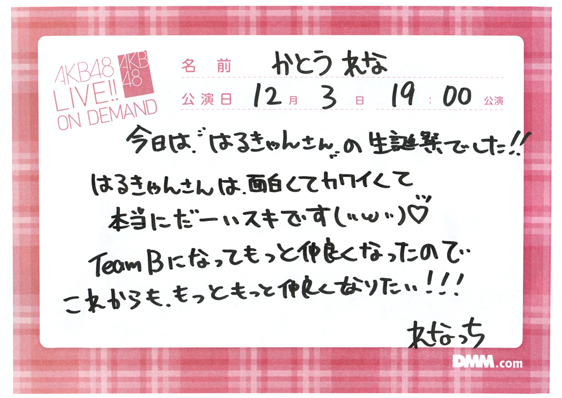 AKB48
LIVE!!
ON DEMAND
AKB
48
名 前 かとうれな
公演日 12月 3日 19:00 公演
今日は、"はるきゃんさん"の生誕祭でした!!
はるきゃんさんは、面白くてカワイくて
本当にだーいスキです(''ω'')♡
Team Bになってもっと仲良くなったので
これからも、もっともっと仲良くなりたい!!!
れなっち
DMM.com